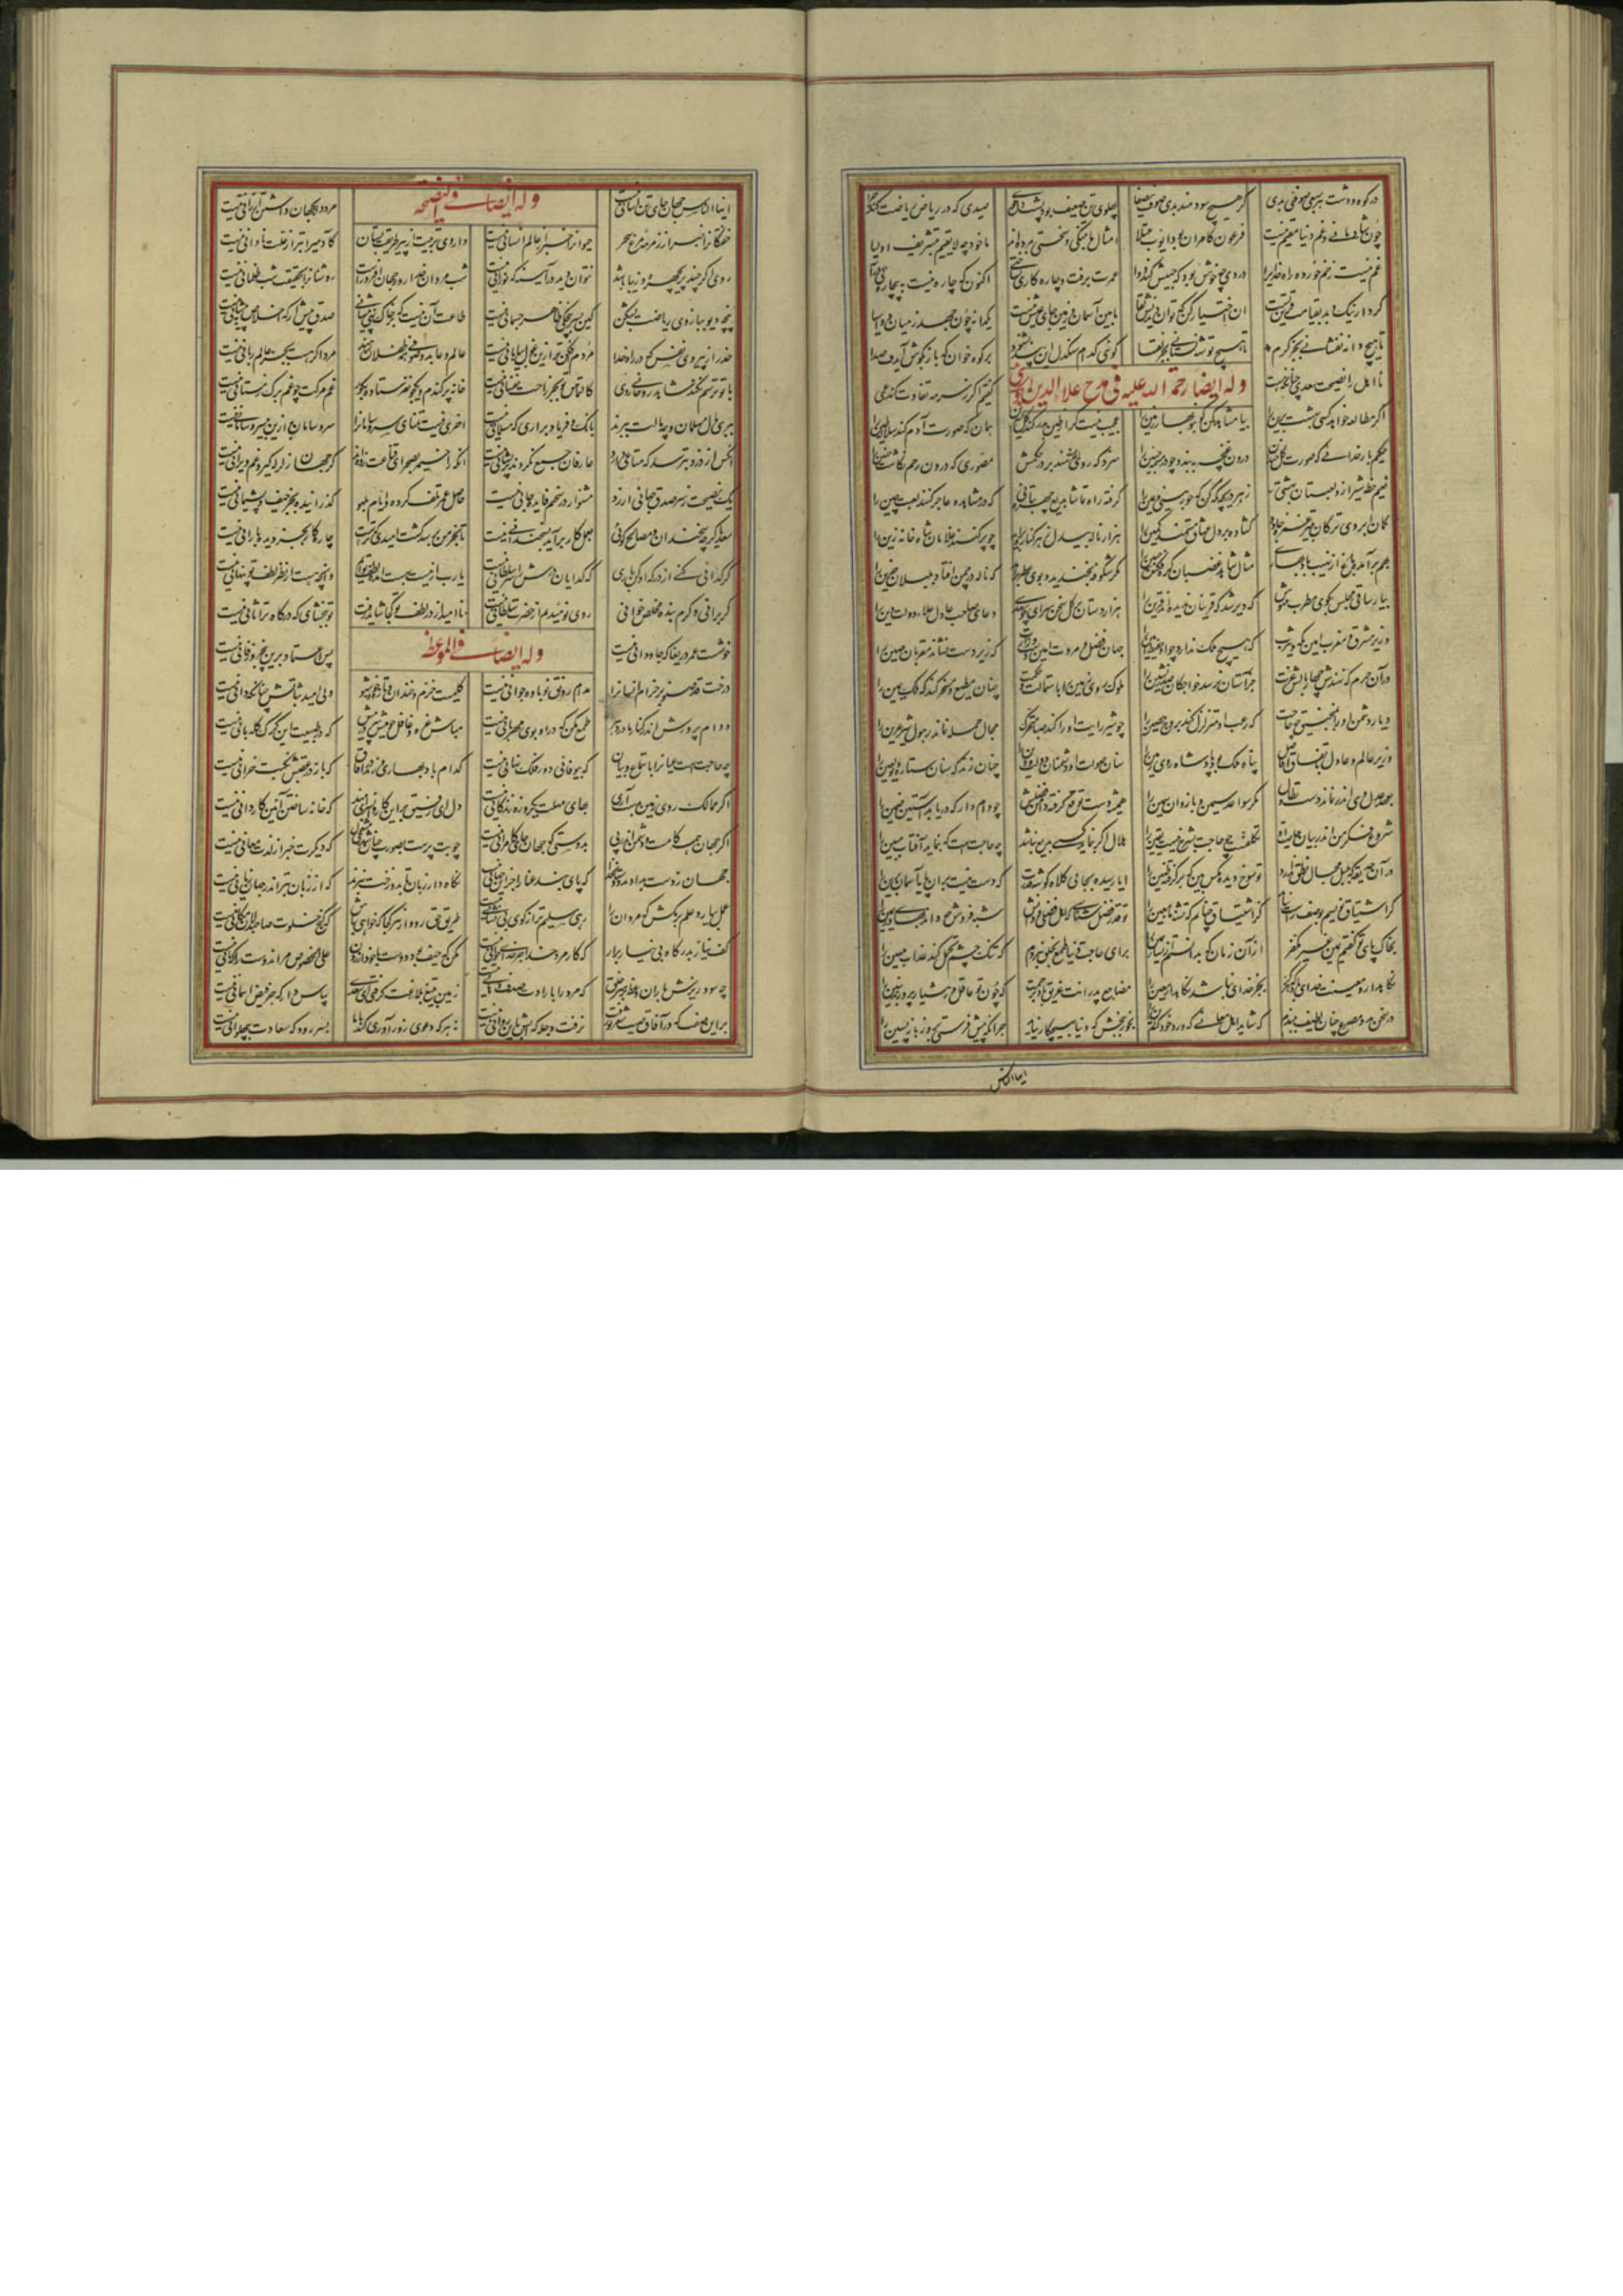 در کوه و دشت هر سبعی صوفی بدی گر هیچ سودمند بدی صوف بی صفا پهلوی تن ضعیف بود صیدی که در ریاض ریاضت کند چرا
چون شادمانی و غم دنیا مقیم نیست فرعون کامران به و ایوب مبتلا امثال ما بتنگی و سختی بمرده‌اند ما خود چه لایقیم بتشریف اولیا
غم نیست زخم خورده راه خدای را دردی چه خوش بود که حبیبش کند دوا عمرت برفت و چاره کاری نساختی اکنون که چاره نیست به بیچارگی درآ
کردار نیک و بد بقیامت قرین تست آن اختیار کن که توان دیدنش لقا مابین آسمان و زمین جای عیش نیست یکدانه چون جهد ز میان دو آسیا
تا هیچ دانه نفشانی بجز کرم تا هیچ توشه نستانی بجز تقا گوئی کدام سنگدل این پند نشنود بر کوه خوان که باز بگوش آیدت صدا
نااهل را نصیحت سعدی چنانکه هست گفتیم اگر بسرمه تفاوت کند عمی
وله ایضا رحمة الله علیه فی مدح علاء الدین
اگر مطالعه خواهد کسی بهشت برین را بیا مشاهده کن گو بنوبهار زمین را عجب نیست گر از طین بدر کند گل نسرین همان که صورت آدم کند سلاله طین را
حکیم بار خدائی که صورت گل خندان درون غنچه ببندد چو در مشیمه جنین را سزد که روی نهند بر در حکمش مصوری که درون رحم نگاشت جنین را
نعیم خطه شیراز و لعبتان بهشتی ز هر دریچه نگه کن که حور بینی و عین را گرفته راه تماشا بدیع چهره بتانی که در مشاهده عاجز کنند لعبت چین را
کمان ابروی ترکان بتیر غمزه جادو گشاده بر دل عشاق مستمند کمین را هزار ناله بیدل ز هر کنار برآید چو پر کنند غلامان شاه خانه زین را
بهم برآمده آب از نهیب باد بهاری مثال شاهد غضبان گره فکنده جبین را مگر شکوفه بخندید و بوی عطر برآمد که ناله در چمن افتاد بلبلان حزین را
بیار ساقی مجلس بگوی مطرب مونس که دیر شد که قرینان ندیده‌اند قرین را هزار دستان بر گل سخن سرای چو سعدی دعای صاحب عادل علاء دولت و دین را
وزیر مشرق و مغرب امین مکه و یثرب که هیچ ملک ندارد چو او حفیظ و امین را جهان فضل و مروت که زیر دست نشاند مقربان مکین را
در آن حرم که نهندش چهار بالش عزت جز آستان نرسد خواجگان صدر نشین را ملوک روی زمین را باستمالت و حکمت چنان مطیع و مسخر کند که ملک یمین را
دیار دشمن او را بمنجنیق چه حاجت که رعب او متزلزل کند بروج حصین را چو شیر رایت او را کند صبا متحرک مجال حمله نماند ز هول شیر عرین را
وزیر عالم و عادل باتفاق افاضل پناه ملک و پادشاه روی زمین را سنان صولت او دشمنان دولت و دین را چنان زند که سنان ستاره دیو لعین را
بعهد عدل وی اندر نماند دست تطاول مگر سواعد سیمین و بازوان سمین را همیشه دست توقع گرفته دامن فضلش چو وام دار که دریابد آستین ضمین را
هلال اگر بنماید کسی بدیع نباشد چه حاجت است که بنماید آفتاب مبین را
در آن صحیفه که بلبل مجال نطق ندارد تو شوخ دیده مگس بین که برگرفت طنین را ایا رسیده بجائی کلاه گوشه قدرت که دست نیست بر آن پایه آسمان برین را
گر اشتیاق نویسم بوصف راست نیاید کز اشتیاق چنانم که تشنه ماء معین را تو قدر فضل شناسی که اهل فضلی و دانش شبه فروش چه داند بهای در ثمین را
بخاک پای تو گفتم یمین غیر مکفر از آن زمان که بدانستم از یسار یمین را برای حاجت دنیا طمع بخلق نبردم که تنگ چشم تحمل کند عذاب مهین را
نگاهدار و معینت خدای باد که هرگز بجز خدای نباشد نگاهدار و معین را مضاجع پدرانت غریق باد برحمت که چون تو عاقل و هشیار پرورند بنین را
در سخن بدو مصرع چنان لطیف ببندم که شاید اهل معانی که ورد خود کند این را بخور ببخش که دنیا بهیچ کار نیاید جز آنکه پیش فرستی بروز بازپسین را
ایها الناس
وله ایضا فی النصیحة
ایها الناس جهان جای تن آسانی نیست مرد دانا بجهان داشتن ارزانی نیست
خفتگان را خبر از زمزمه مرغ سحر حیوان را خبر از عالم انسانی نیست داروی تربیت از پیر طریقت بستان کآدمی را بتر از علت نادانی نیست
روی اگر چند پریچهره و زیبا باشد نتوان دید در آینه که نورانی نیست شب مردان خدا روز جهان افروزست روشنان را بحقیقت شب ظلمانی نیست
پنجه دیو ببازوی ریاضت بشکن کاین بسرپنجگی ظاهر جسمانی نیست طاعت آن نیست که بر خاک نهی پیشانی صدق پیش آر که اخلاص به پیشانی نیست
حذر از پیروی نفس که در راه خدا مردم افکن‌تر ازین غول بیابانی نیست عالم و عابد و صوفی همه طفلان رهند مرد اگر هست بجز عالم ربانی نیست
با تو ترسم نکند شاهد روحانی روی کالتماس تو بجز راحت نفسانی نیست خانه پر گندم و یکجو نفرستاده بگور غم مرگت چو غم برگ زمستانی نیست
ببری مال مسلمان و چو مالت ببرند بانگ و فریاد برآری که مسلمانی نیست آخری نیست تمنای سر و سامان را سر و سامان به ازین بی سر و سامانی نیست
آنکس از دزد بترسد که متاعی دارد عارفان جمع نکردند و پریشانی نیست آنکه را خیمه بصحرای قناعت زده‌اند گر جهان زلزله گیرد غم ویرانی نیست
یک نصیحت ز سر صدق جهانی ارزد مشنو ار در سخنم فایده جانی نیست حاصل عمر تلف کرده و ایام بلهو گذرانیده بجز حیف و پشیمانی نیست
سعدیا گرچه سخندان و مصالح گوئی بعمل کار برآید بسخندانی نیست تا بخرمن برسد کشت امیدی که تراست چاره کار بجز دیده بارانی نیست
گر گدائی کنی از درگه او کن باری که گدایان درش را سر سلطانی نیست یا رب از نیست بهست آمده لطف توایم وآنچه هست از نظر لطف تو پنهانی نیست
گر برانی و گرم بنده مخلص خوانی روی نومیدیم از حضرت سلطانی نیست ناامید از در لطف تو کجا شاید رفت تو ببخشای که درگاه ترا ثانی نیست
وله ایضا فی الموعظه
خوشست عمر دریغا که جاودانی نیست پس اعتماد برین پنجروز فانی نیست
درخت قد صنوبر خرام انسان را مدام رونق نوباوه جوانی نیست گلیست خرم و خندان و تازه و خوشبو ولی امید ثباتش چنانکه دانی نیست
دوام پرورش اندر کنار مادر دهر طمع مکن که درو بوی مهربانی نیست مباش غره و غافل چو میش سر در پیش که در طبیعت این گرگ گله بانی نیست
چه حاجت است عیان را باستماع و بیان که بیوفائی دور فلک نهانی نیست کدام باد بهاری وزید در آفاق که باز در عقبش نکبت خزانی نیست
اگر ممالک روی زمین بدست آری بهای مهلت یکروزه زندگانی نیست دل ای رفیق برین کاروانسرای مبند که خانه ساختن آئین کاروانی نیست
اگر جهان همه کامست و دشمن اندر پی بدوستی که جهان جای کامرانی نیست چو بت پرست بصورت چنان شدی مشغول که دیگرت خبر از لذت معانی نیست
جهان ز دست بدادند دوستان خدا که پای بند عنا را جهان ستانی نیست نگاه دار زبان تا بدوزخت نبرد که از زبان بتر اندر جهان زیانی نیست
عمل بیار و علم برمکش که مردان را رهی سلیم‌تر از کوی بی نشانی نیست طریق حق رو و در هر کجا که خواهی باش که کنج خلوت صاحبدلان مکانی نیست
کف نیاز بدرگاه بی نیاز برآر که کار مرد خدا جز خدای خوانی نیست مکن که حیف بود دوست بر خود آزردن علی الخصوص مر آن دوست را که ثانی نیست
چه سود ریزش باران وعظ بر سر خلق که مرد را بارادت صدف دهانی نیست زمین بتیغ بلاغت گرفته‌ای سعدی سپاس دار که جز فیض آسمانی نیست
بدین صفت که در آفاق صیت شعر تو رفت نرفت دجله که آبش بدین روانی نیست نه هر که دعوی زورآوری کند با ما بسر رود که سعادت بپهلوانی نیست